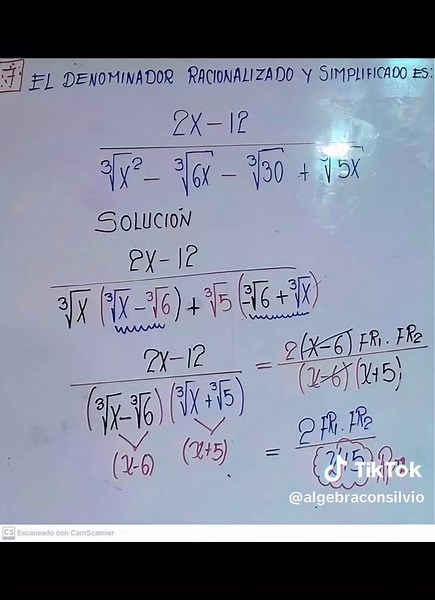 7 EL DENOMINADOR RACIONALIZADO Y SIMPLIFICADO ES:
2X-12
∛X² - ∛6X - ∛30 + ∛5X
SOLUCIÓN
2X-12
∛X (∛X-∛6) + ∛5 (-∛6+∛X)
2X-12 = 2(X-6) FR₁. FR₂
(∛X-∛6)(∛X+∛5) (X-6)(X+5)
(X-6) (X+5) = 2 FR₁. FR₂
X+5
TikTok
@algebraconsilvio
CS Escaneado con CamScanner